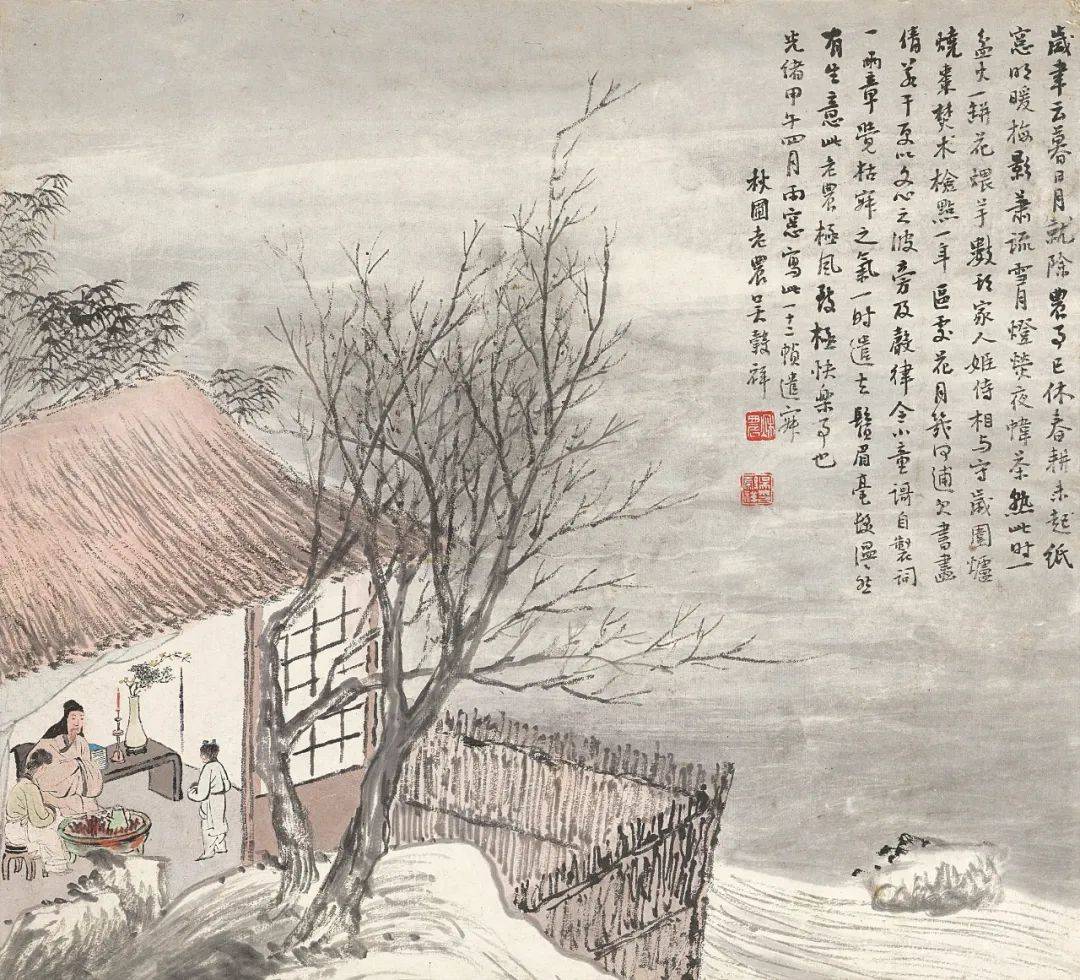 歲聿云暮日月就除農事已休春耕未起紙
窓明暖梅影蕭疏雪月燈熒夜幃茶熟此時一
盆火一缾花煨芋數頭家人姬侍相与守歲圍爐
燒棗焚朮檢點一年區處花月幾何逋欠書畫
債若干更以文心之波旁及聲律令小童謌自製詞
一兩章覺枯寂之氣一時遣去鬚眉毫髮溫〻然
有生意此老農極風致極快樂事也
光緒甲午四月雨窓寫此一十二幀遣寂
秋圃老農吳穀祥
秋農